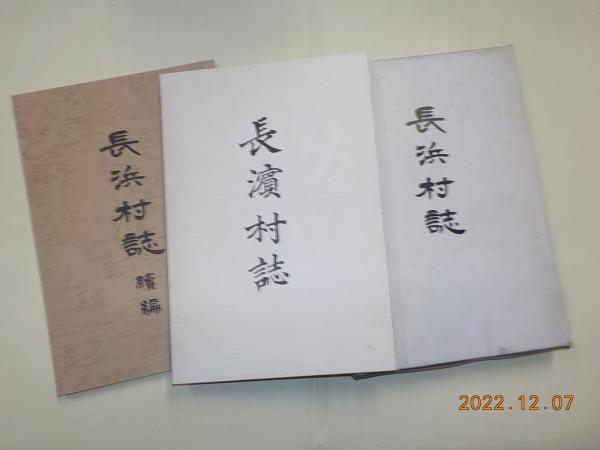 長浜村誌
續編
長濵村誌
長浜村誌
2022.12.07